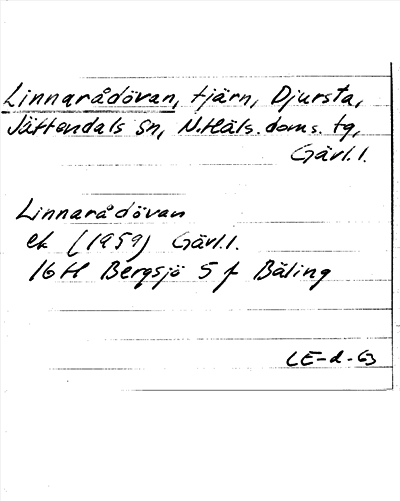 Linnarådövan, tjärn, Djursta,
Jättendals sn, N.Häls. doms. tg,
Gävl.l.
Linnarådövan
ek (1959) Gävl.l.
16H Bergsjö 5 f Bäling
LE-d-63